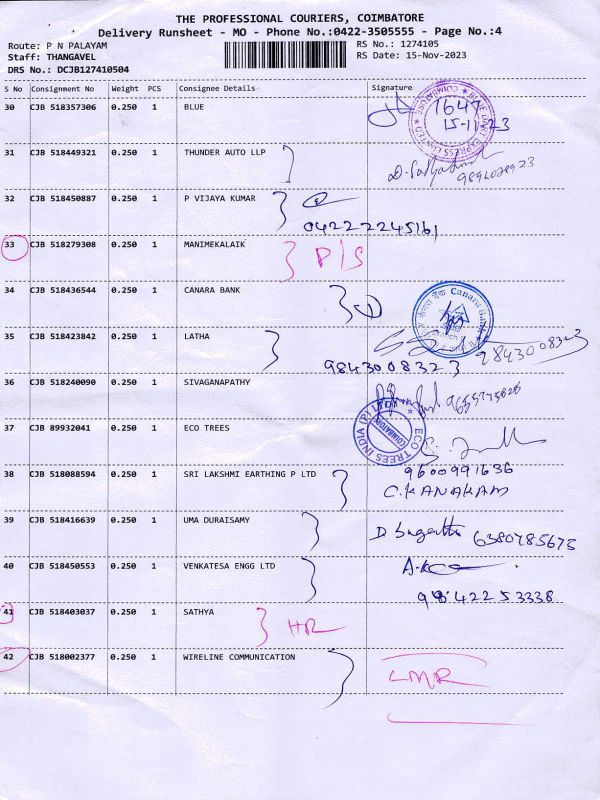 THE PROFESSIONAL COURIERS, COIMBATORE
Delivery Runsheet - MO - Phone No.:0422-3505555 - Page No.:4
Route: P N PALAYAM
Staff: THANGAVEL
DRS No.: DCJB127410504
RS No.: 1274105
RS Date: 15-Nov-2023
S No Consignment No Weight PCS Consignee Details Signature
30 CJB 518357306 0.250 1 BLUE
1647
15-11-23
31 CJB 518449321 0.250 1 THUNDER AUTO LLP
32 CJB 518450887 0.250 1 P VIJAYA KUMAR
04222245161
33 CJB 518279308 0.250 1 MANIMEKALAIK P/S
34 CJB 518436544 0.250 1 CANARA BANK
Canara Bank
35 CJB 518423842 0.250 1 LATHA
9843008323 9843008323
36 CJB 518240090 0.250 1 SIVAGANAPATHY
37 CJB 89932041 0.250 1 ECO TREES
ECO TREES INDIA (P) LTD
COIMBATORE
38 CJB 518088594 0.250 1 SRI LAKSHMI EARTHING P LTD
9600991636
C.KANAKAM
39 CJB 518416639 0.250 1 UMA DURAISAMY
6380785675
40 CJB 518450553 0.250 1 VENKATESA ENGG LTD
9842253338
41 CJB 518403037 0.250 1 SATHYA HR
42 CJB 518002377 0.250 1 WIRELINE COMMUNICATION
LMR